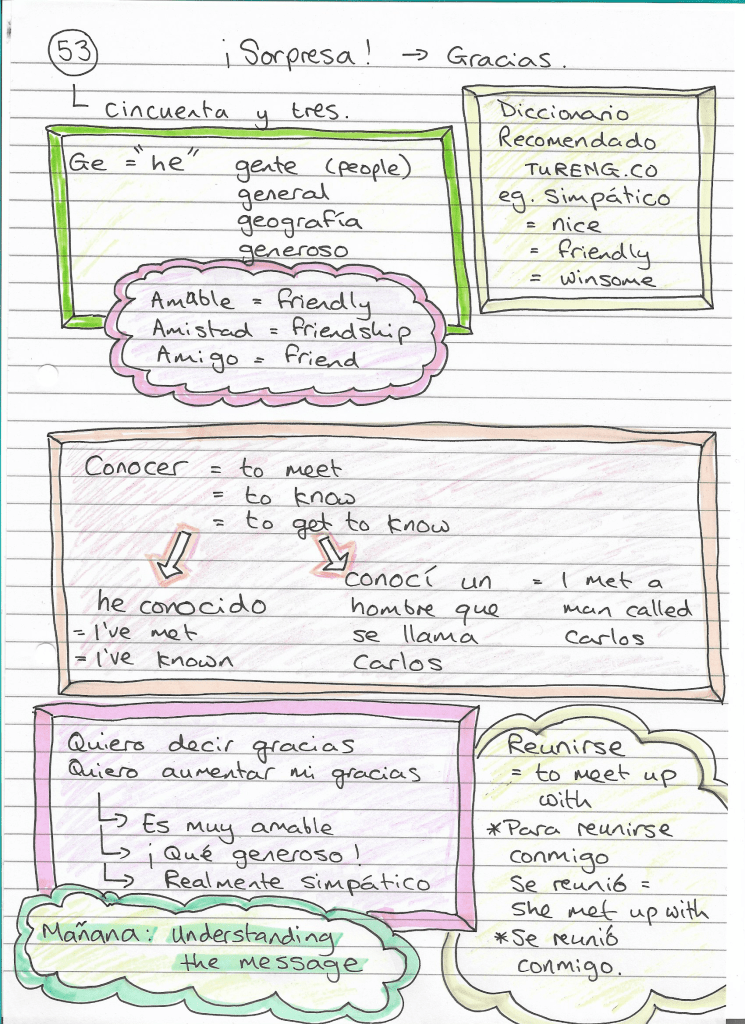 53
¡Sorpresa! → Gracias.
cincuenta y tres.
Ge = "he" gente (people)
general
geografía
generoso
Diccionario
Recomendado
TURENG.CO
eg. Simpático
= nice
= friendly
= winsome
Amable = friendly
Amistad = friendship
Amigo = friend
Conocer = to meet
= to know
= to get to know
he conocido
= I've met
= I've known
conocí un
hombre que
se llama
Carlos
= I met a
man called
Carlos
Quiero decir gracias
Quiero aumentar mi gracias
Es muy amable
¡Qué generoso!
Realmente simpático
Reunirse
= to meet up
with
*Para reunirse
conmigo
Se reunió =
She met up with
*Se reunió
conmigo.
Mañana: Understanding
the message